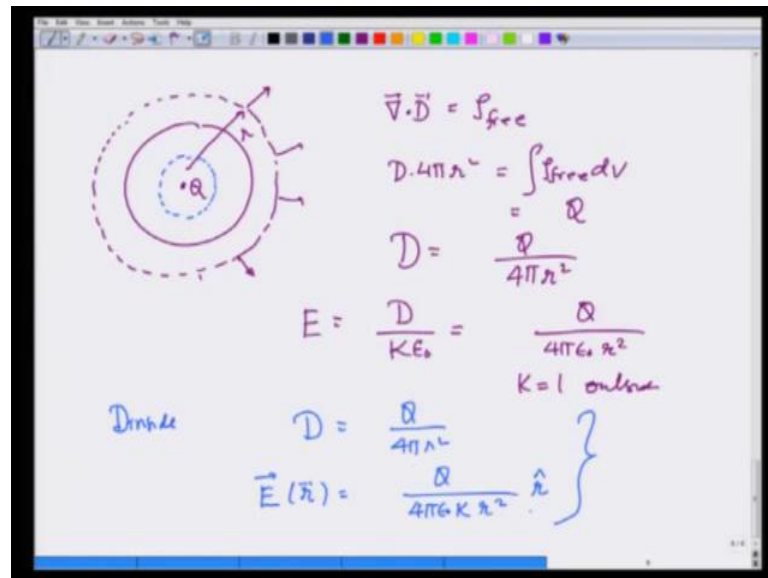 File Edit View Insert Actions Tools Help
Q
r
∇⃗·D⃗ = ρfree
D·4πr² = ∫ρfree dV
= Q
D = Q / 4πr²
E = D / Kε₀ = Q / 4πε₀ r²
K = 1 outside
Dinside D = Q / 4πr²
E⃗(r⃗) = Q / 4πε₀K r² r̂